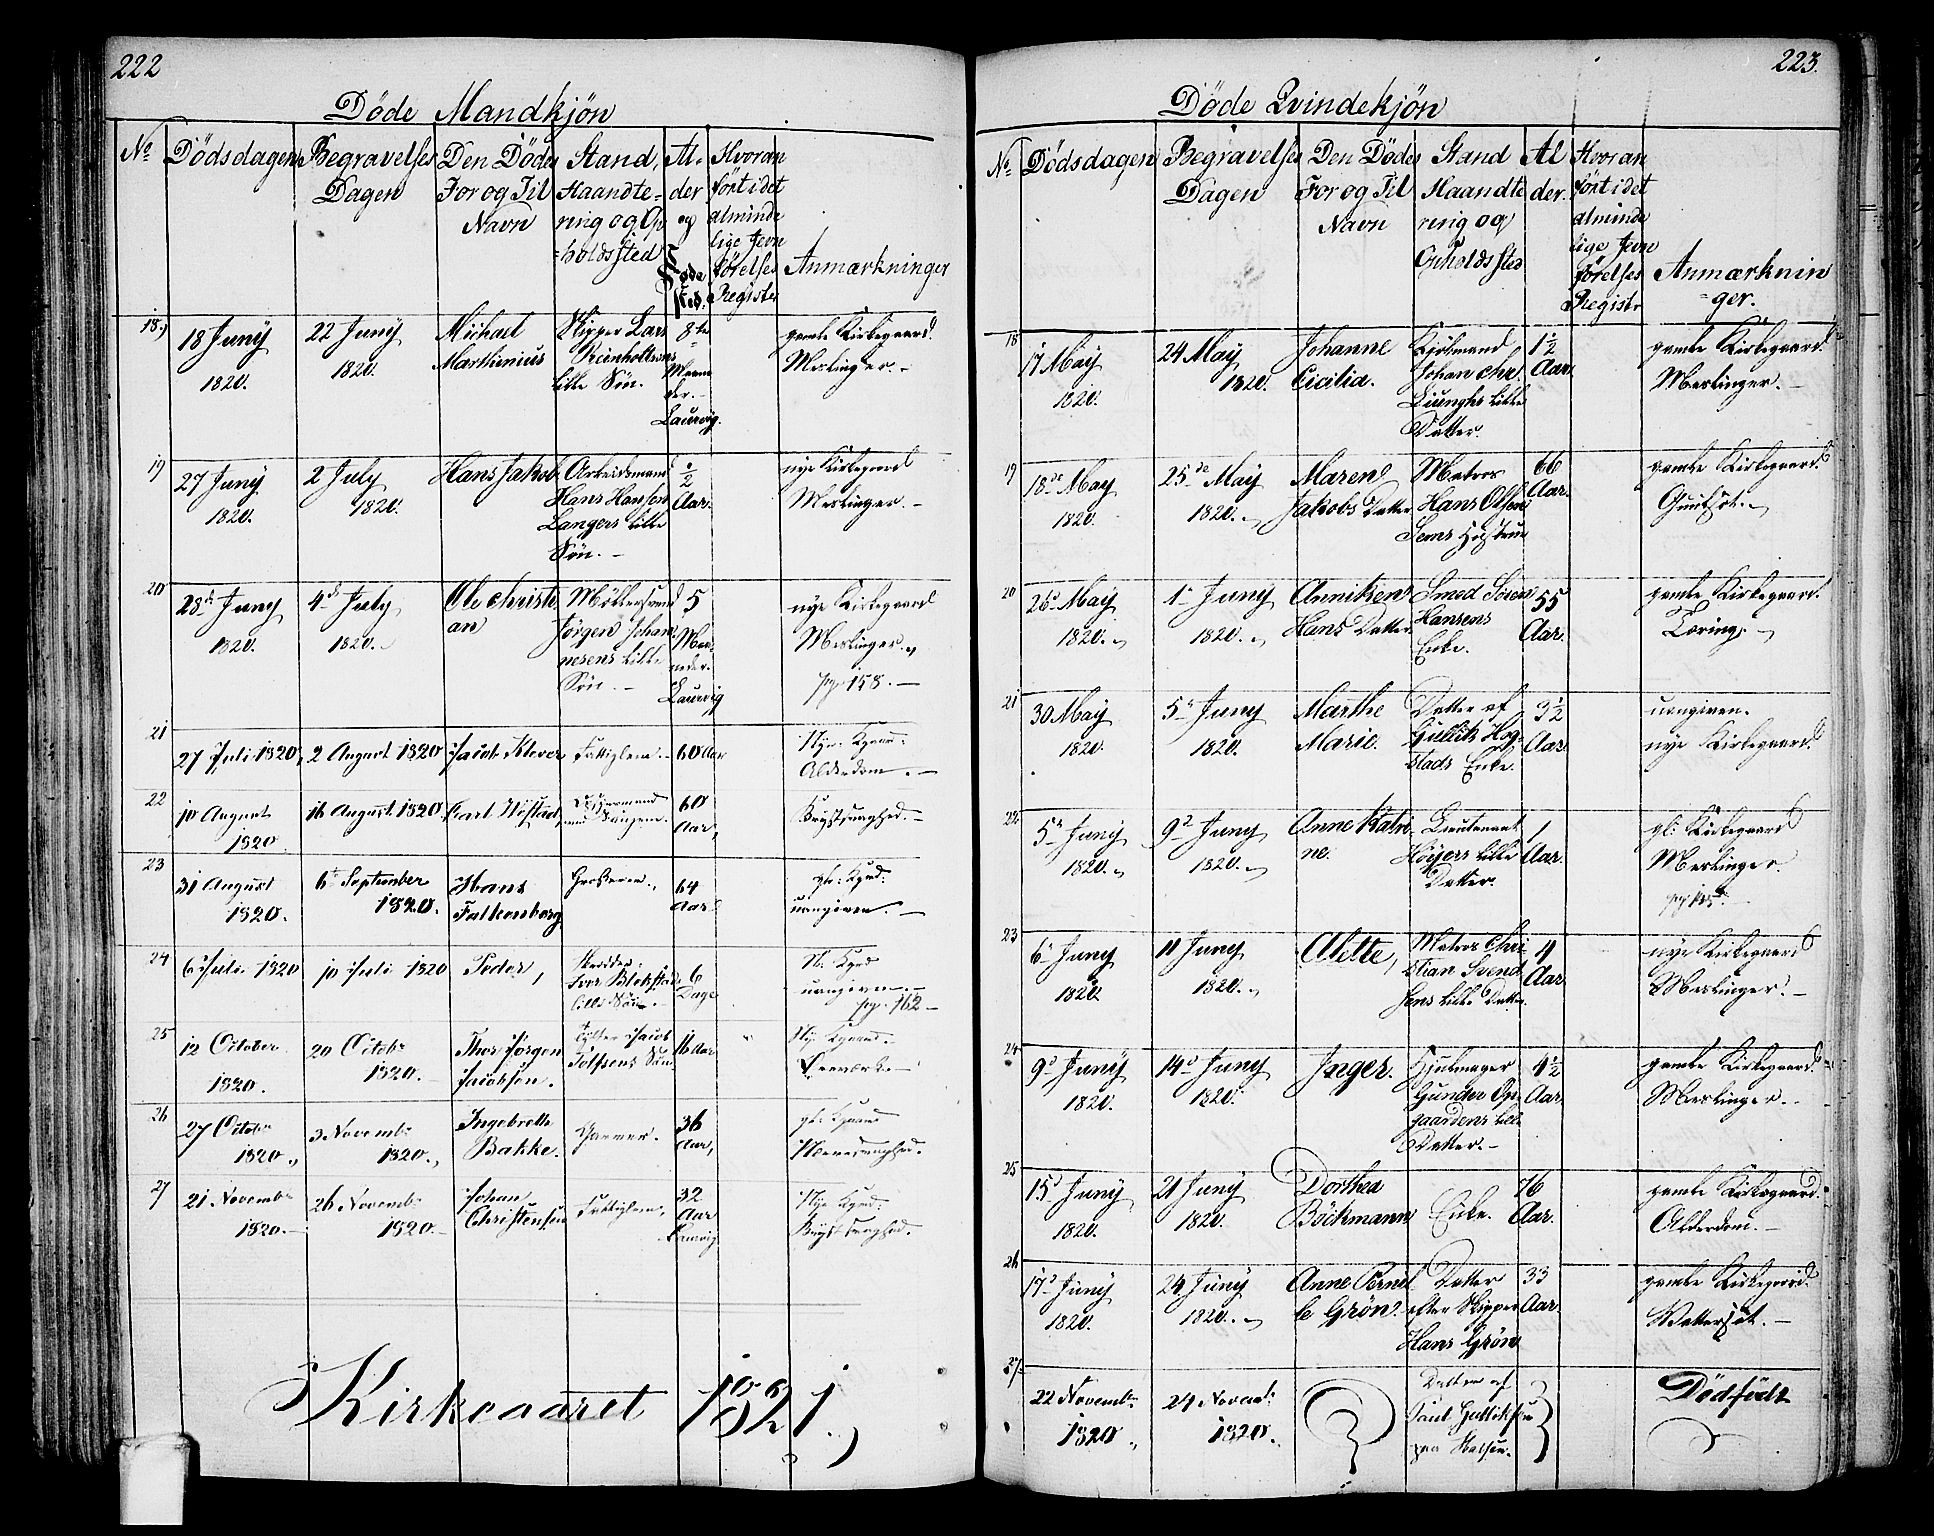 222
Døde Mandkjön
No
Dödsdagen
Begravelses
Dagen
Den Dödes
For og Til
Navn
Stand,
Haandte-
ring og Op
=holdssted
Al-
der
og
Føde
sted.
Hvoran
fört i det
alminde
lige Jevn
förelses
Register
Anmærkninger
18.)
18 Juny
1820.
22 Juny
1820.
Michael
Marthinius
Skipper Lars
Reinholtsens
lille Søn.
8te
Maane
der.-
Laurvig.
gamle Kirkegaard.
Meslinger.-
19
27 Juny
1820.
2 July
1820.
Hans Jakob
Arbeidsmand
Hans Hansen
Langers lille
Søn.-
½
Aar.
nye Kirkegaard
Meslinger.-
20
28d Juny
1820.
4d July
1820.
Ole Christi
an
Möllersvend
Jörgen Johan
nesens lille
Søn.-
5
Maa-
neder.
Laurvig
nye Kirkegaard
Meslinger.
pag. 158.-
21
27 Juli 1820,
2 August 1820
Jacob Klever
Fattiglem.-
60 Aar
Nye Kgaar:
Alderdom.-
22
10 August
1820
16 August 1820,
Carl Höstad,
60
Aar,
Brystsvaghed.-
23
31 August
1820.
6te September
1820.
Hans
Falkenborg
Grosserer.,
64
Aar.
gl: Kgrd:
uangiven.-
24
6 Juli 1820
10 Juli 1820
Peder,
Skredder
Iver Blokstad
lille Søn.-
6
Dage
N. Kgrd
uangiven.-
pag. 162-
25
12 October
1820.
20 Octobr
1820.-
Thor Jörgen
Jacobsen.
Jacob
Tolfsens Søn
16 Aar
"
Ny: Kgaard.-
26
27 Octobr
1820.,
3 Novembr
1820.,
Ingebreth
Bakke.
Garver.
36
Aar,
gl: Kgaard
Nervesvaghed.
27
21 Novembr
1820.-
26 Novembr
1820.-
Johan
Christensen
Fattiglem,
32
Aar
Laurvig
Nye Kgrd:
Brystsvaghed.
Kirkeaaret 1821.
223.
Döde Qvindekjön
No
Dödsdagen
Begravelses
Dagen
Den Dödes
For og Til
Navn
Stand
Haandte
ring og
Opholdssted
Al
der.
Hvoran
fört i det
alminde
lige Jevn
förelses
Registr
Anmærknin
=ger.
18
17 May
1820.
24 May
1820.
Johanne
Cicilia.
Kjöbmand
Johan Chr.
Liunghs lille
Datter.
1½
Aar.
gamle Kirkegaard.
Meslinger.-
19
18de May
1820.
25de May
1820.
Maren
Jakobs Datter
Matros
Hans Olsen
Sems Hustrue
66
Aar.
gamle Kirkegaard.
20
26d May
1820.
1d Juny
1820.
Anniken
Hans Datter
Smed Sören
Hansens
Enke.
55
Aar.
gamle Kirkegaard.
Tæring.
21
30 May
1820.
5d Juny
1820.
Marthe
Marie.
Datter af
Gullik Hog-
stads Enke.
3½
Aar.
uangiven.
nye Kirkegaard.
22
5d Juny
1820.
9d Juny
1820.
Anne Katri
ne.
Lieutenant
Höyers lille
Datter.
1
Aar.
gl: Kirkegaard
Meslinger.
23
6d Juny
1820.
11 Juny
1820.
Alette,
Matros Chri-
stian Svend
sens lille Datter.
4
Aar.
nye Kirkegaard
Meslinger.-
24
9d Juny
1820.
14d Juny
1820.
Inger.
Hjulmager
Gunder Op-
gaardens lille
Datter.-
4½
Aar.
gamle Kirkegaard.
Meslinger.-
25
15d Juny
1820.
21 Juny
1820.
Dorthea
Böckmann
Enke.
76
Aar.
gamle Kirkegaard.
Alderdom.-
26
17d Juny
1820.
24 Juny
1820.
Anne Pernil
le Grön.
Datter
efter Skipper
Hans Grön
33
Aar.
gamle Kirkegaard.
Wattersot.-
27.
22 Novembr
1820.
24 Novembr
1820.
Datter af
Poul Gulliksen
Dödfödt